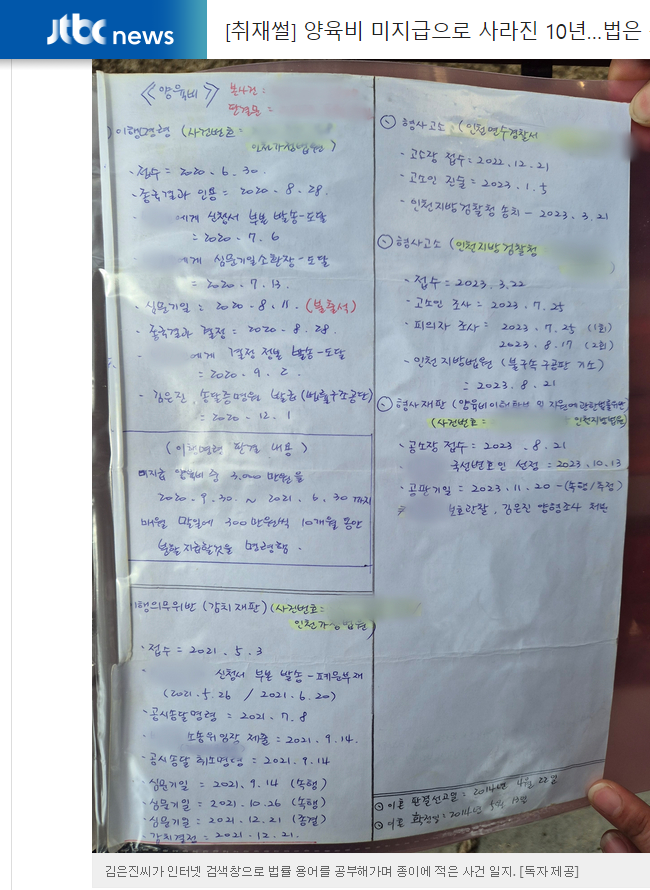 jtbc news
[취재썰] 양육비 미지급으로 사라진 10년...법은
《양육비》
본사건 :
판결문 :
이행명령 (사건번호 :
인천가정법원)
· 접수 = 2020. 6. 30.
· 종국결과 인용 = 2020. 8. 28.
에게 신청서 부본 발송-도달
= 2020. 7. 6
에게 심문기일소환장-도달
= 2020. 7. 13.
· 심문기일 : 2020. 8. 11. (불출석)
· 종국결과 결정 = 2020. 8. 28.
에게 결정 정본 발송-도달
= 2020. 9. 2.
· 김은진, 송달증명원 발급 (법률구조공단)
= 2020. 12. 1
(이행명령 판결 내용)
미지급 양육비 중 3,000만원을
2020. 9. 30. ~ 2021. 6. 30 까지
매월 말일에 300만원씩 10개월 동안
분할지급할것을 명령함.
이행의무위반 (감치재판) (사건번호 :
인천가정법원)
· 접수 = 2021. 5. 3
신청서 부본 발송-폐문부재
(2021. 5. 26 / 2021. 6. 20)
· 공시송달명령 = 2021. 7. 8
소송위임장 제출 = 2021. 9. 14.
공시송달 취소명령 = 2021. 9. 14
· 심문기일 = 2021. 9. 14 (속행)
· 심문기일 = 2021. 10. 26 (속행)
· 심문기일 = 2021. 12. 21 (종결)
· 감치결정 = 2021. 12. 21.
형사고소 : (인천연수경찰서
· 고소장 접수 : 2022. 12. 21
· 고소인 진술 = 2023. 1. 5
· 인천지방검찰청 송치 - 2023. 3. 21
형사고소 (인천지방검찰청
)
· 접수 = 2023. 3. 22
· 고소인 조사 = 2023. 7. 25
· 피의자 조사 = 2023. 7. 25 (1회)
2023. 8. 17 (2회)
· 인천지방법원 (불구속구공판 기소)
= 2023. 8. 21
형사재판 (양육비이행확보 및 지원에관한법률위반)
(사건번호 = 인천지방법원)
· 공소장 접수 = 2023. 8. 21
국선변호인 선정 = 2023. 10. 13
· 공판기일 = 2023. 11. 20 - (속행/추정)
보호관찰, 김은진 양형조사 제반
이혼 판결선고일 = 2014년 4월 22일
이혼 확정일 = 2014년 5월
김은진씨가 인터넷 검색창으로 법률 용어를 공부해가며 종이에 적은 사건 일지. [독자 제공]